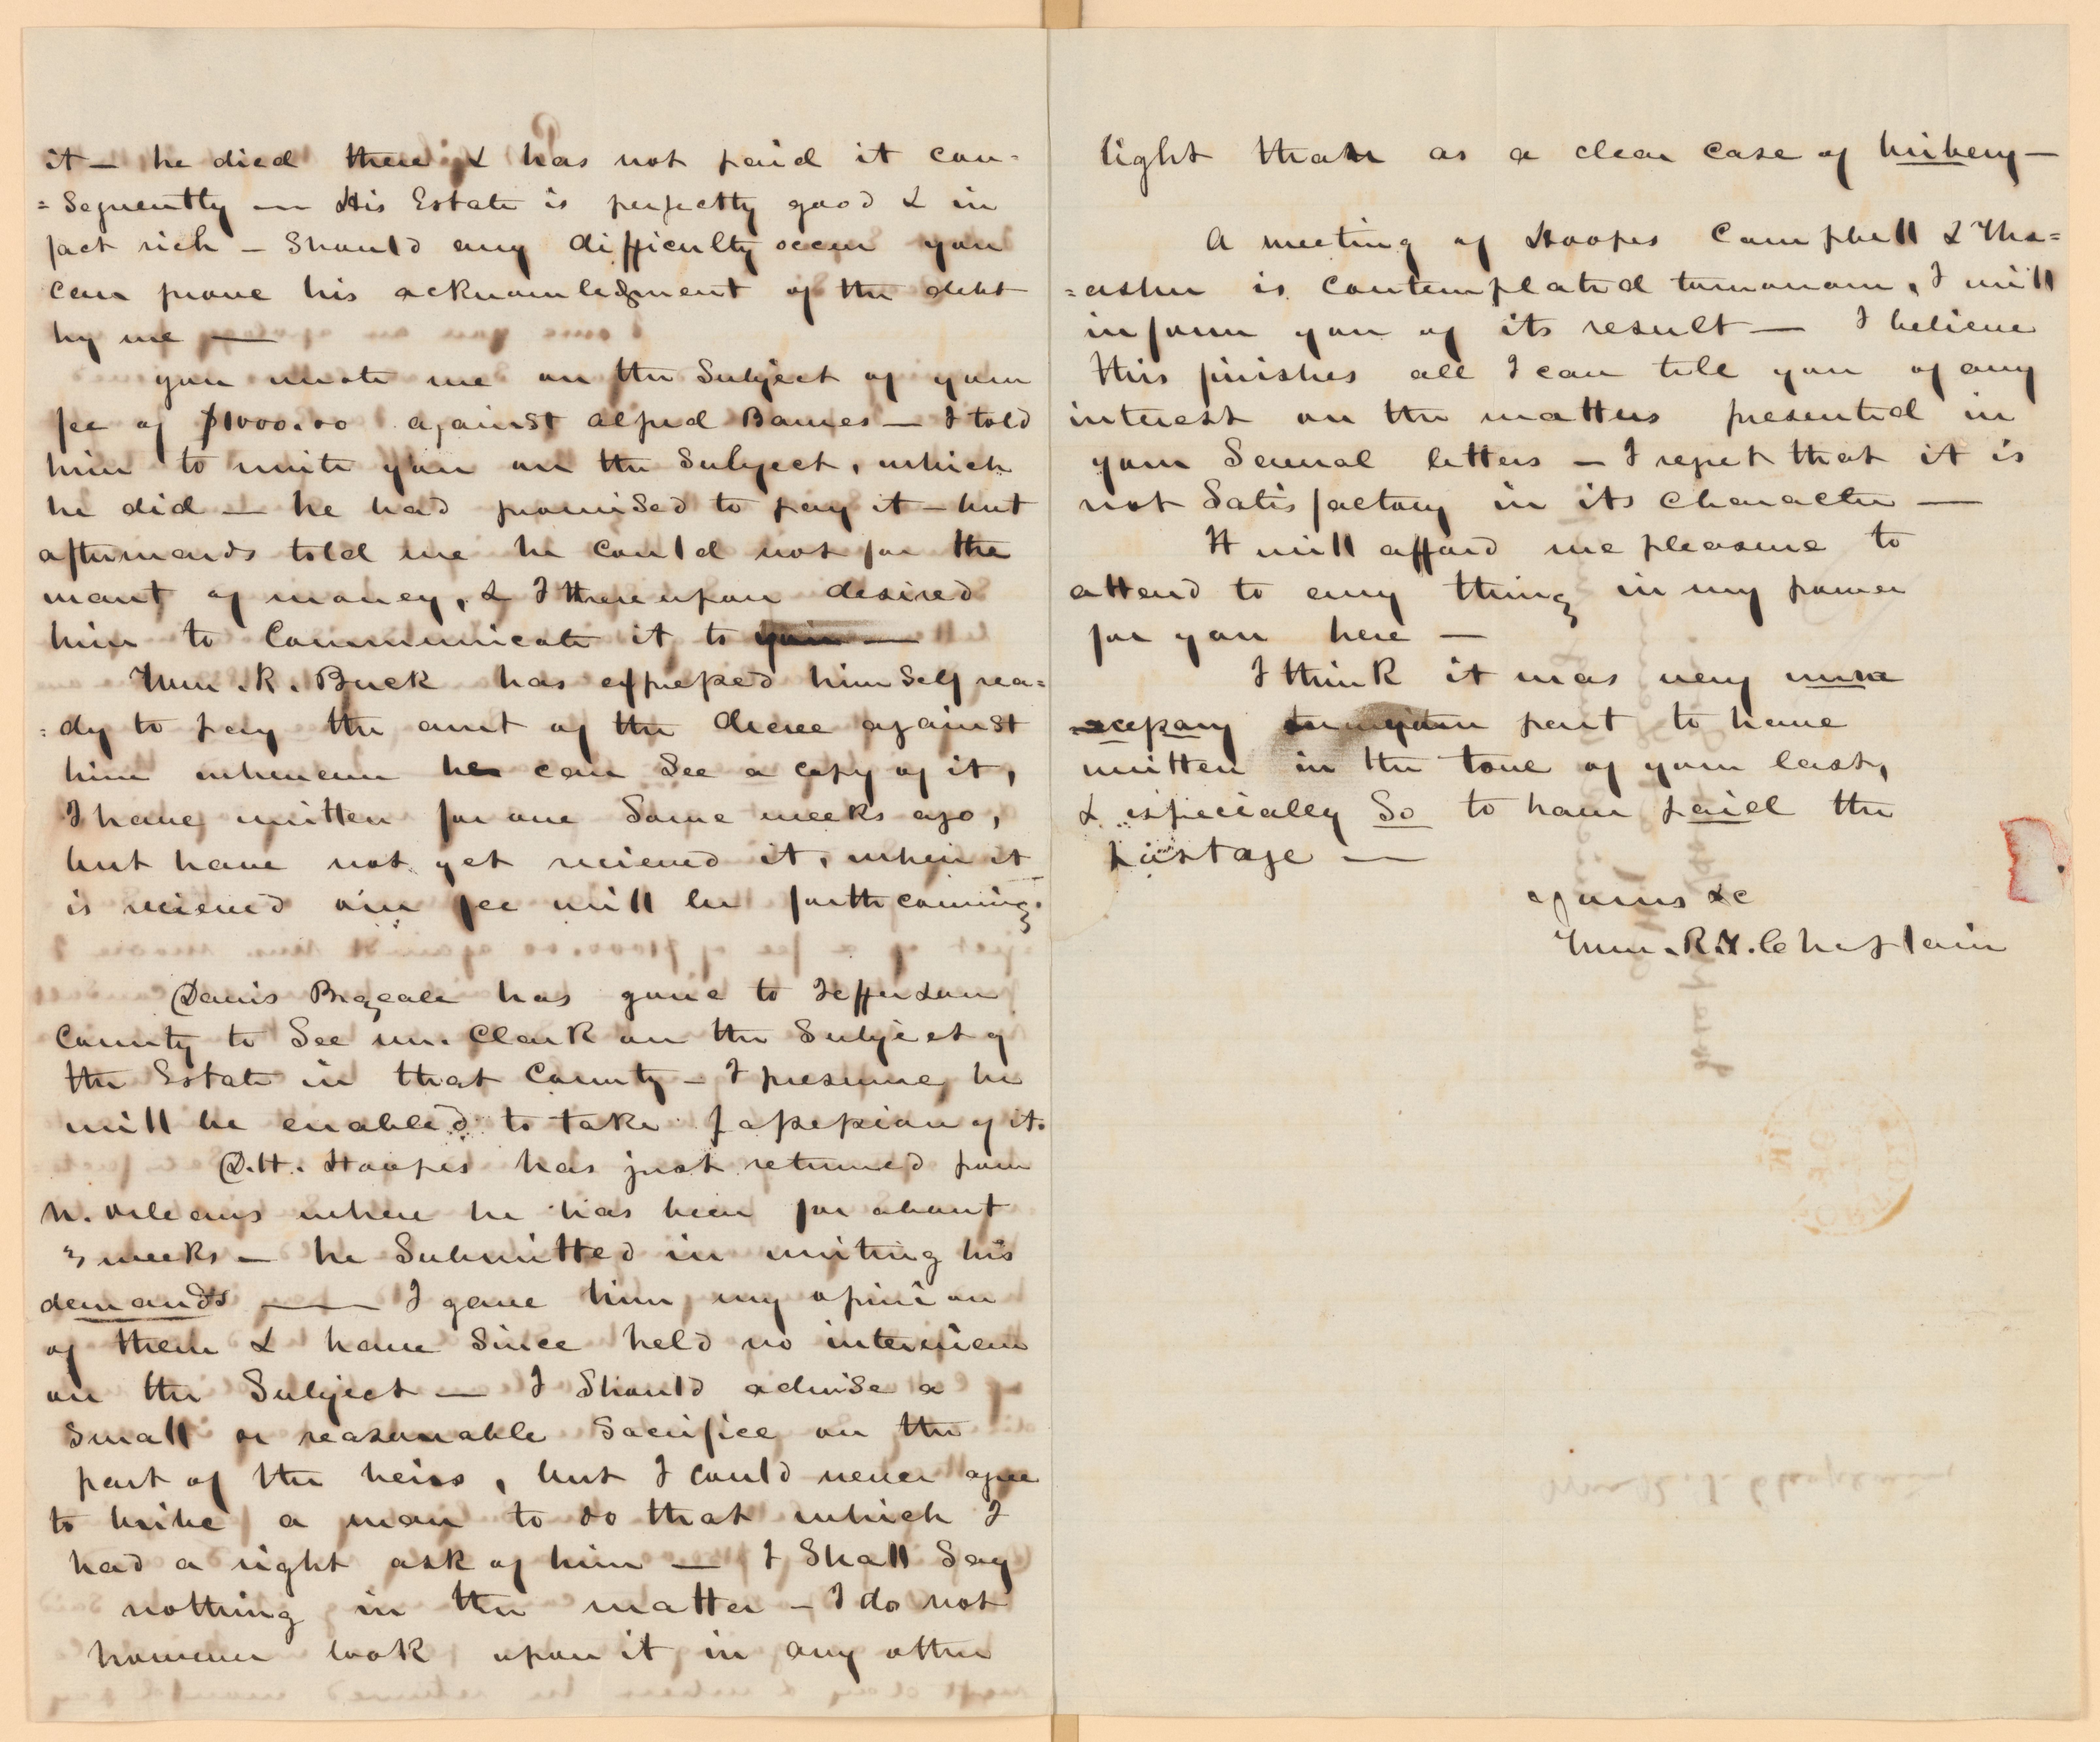 it — he died there & has not paid it con-
=sequently — His Estate is perfectly good & in
fact rich — Should any difficulty occur you
can prove his acknowledgment of the debt
by me —
you wrote me on the Subject of your
fee of $1000.00 against Alfred Barnes — I told
him to write you on the Subject, which
he did — he had promised to pay it — but
afterwards told me he could not for the
want of money, & I thereupon desired
him to communicate it to you —
Wm. R. Buck has expressed himself rea=
=dy to pay the amt of the decree against
him whenever he can See a copy of it,
I have written for one Some weeks ago,
but have not yet recieved it, when it
is recieved our fee will be forthcoming.
Davis Bozeale has gone to Jefferson
County to See Mr. Clark on the Subject of
the Estate in that County — I presume he
will be enabled to take possession of it.
D. H. Hoopes has just returned from
N. Orleans where he has been for about
3 weeks — he Submitted in writing his
demands — I gave him my opinion
of them & have Since held no interview
on the Subject — I Should advise a
Small or reasonable Sacrifice on the
part of the heirs, but I could never agree
to bribe a man to do that which I
had a right ask of him — I Shall Say
nothing in the matter — I do not
however look upon it in any other
light than as a clear case of bribery —
A meeting of Hoopes Campbell & Tha=
=asher is contemplated tomorrow, I will
inform you of its result — I believe
this finishes all I can tell you of any
interest on the matters presented in
your Several letters — I regret that it is
not Satisfactory in its character —
It will afford me pleasure to
attend to any thing in my power
for you here —
I think it was very unne
=cessary on your part to have
written in the tone of your last,
& especially So to have paid the
postage —
Yours &c
Wm. R. T. Chaplain